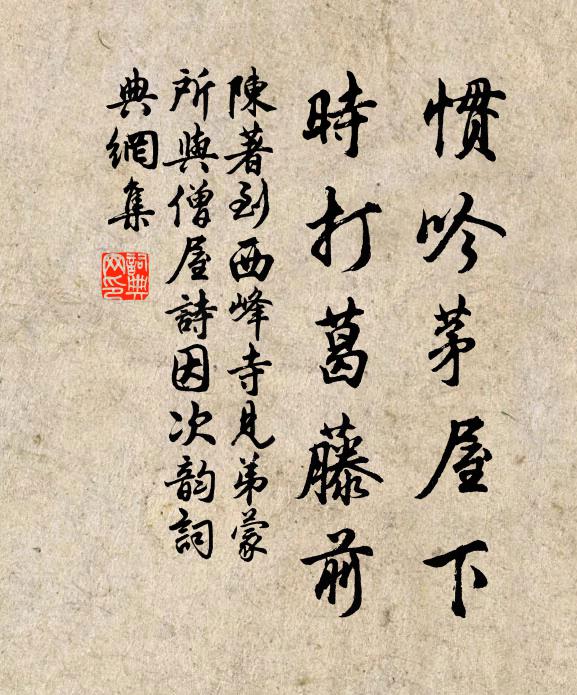 慣吟茅屋下
時打葛藤前
陳著到西峰寺見弟蒙
所與僧屋詩因次韵詞
典網集
詞典網印